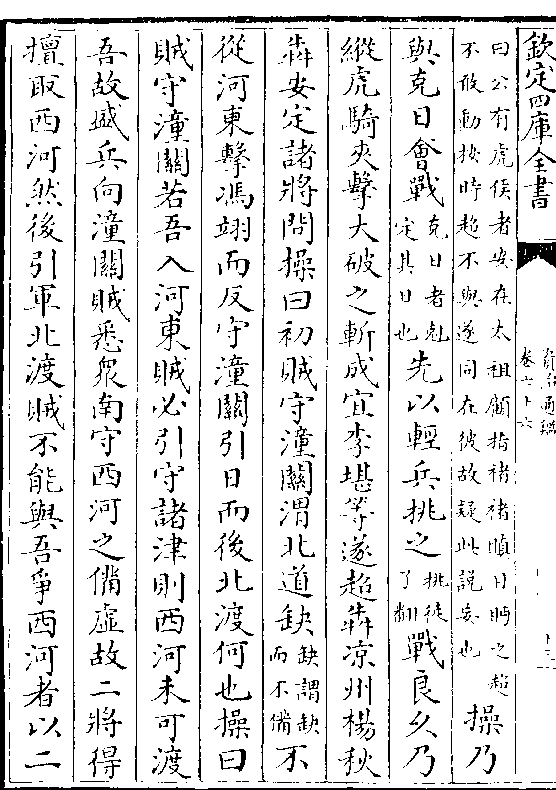 欽定四庫全書
資治通鑑
卷六十六
曰公有虎侯者安在太祖顧指禇禇瞋目盻之超
不敢動按時超不與遂同在彼故疑此說妄也
操乃
與克日會戰克日者尅定其日也先以輕兵挑之挑徒了翻戰良久乃
縱虎騎夾擊大破之斬成宜李堪等遂超犇凉州楊秋
犇安定諸將問操曰初賊守潼關渭北道缺缺謂缺而不備不
從河東擊馮翊而反守潼關引日而後北渡何也操曰
賊守潼關若吾入河東賊必引守諸津則西河未可渡
吾故盛兵向潼關賊悉衆南守西河之備虛故二將得
擅取西河然後引軍北渡賊不能與吾爭西河者以二